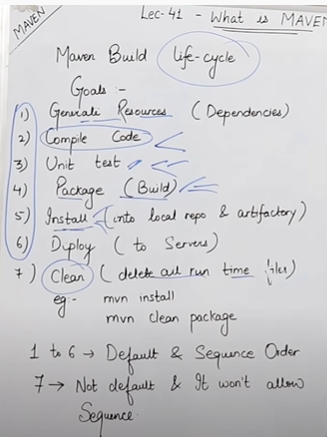 MAVEN
Lec-41 - What is MAVEN
Maven Build life-cycle
Goals :-
1) Generate Resources (Dependencies)
2) Compile Code
3) Unit test
4) Package (Build)
5) Install (into local repo & artifactory)
6) Deploy (to Servers)
7) Clean (delete all run time files)
eg:- mvn install
mvn clean package
1 to 6 → Default & Sequence Order
7 → Not default & It won't allow
Sequence.